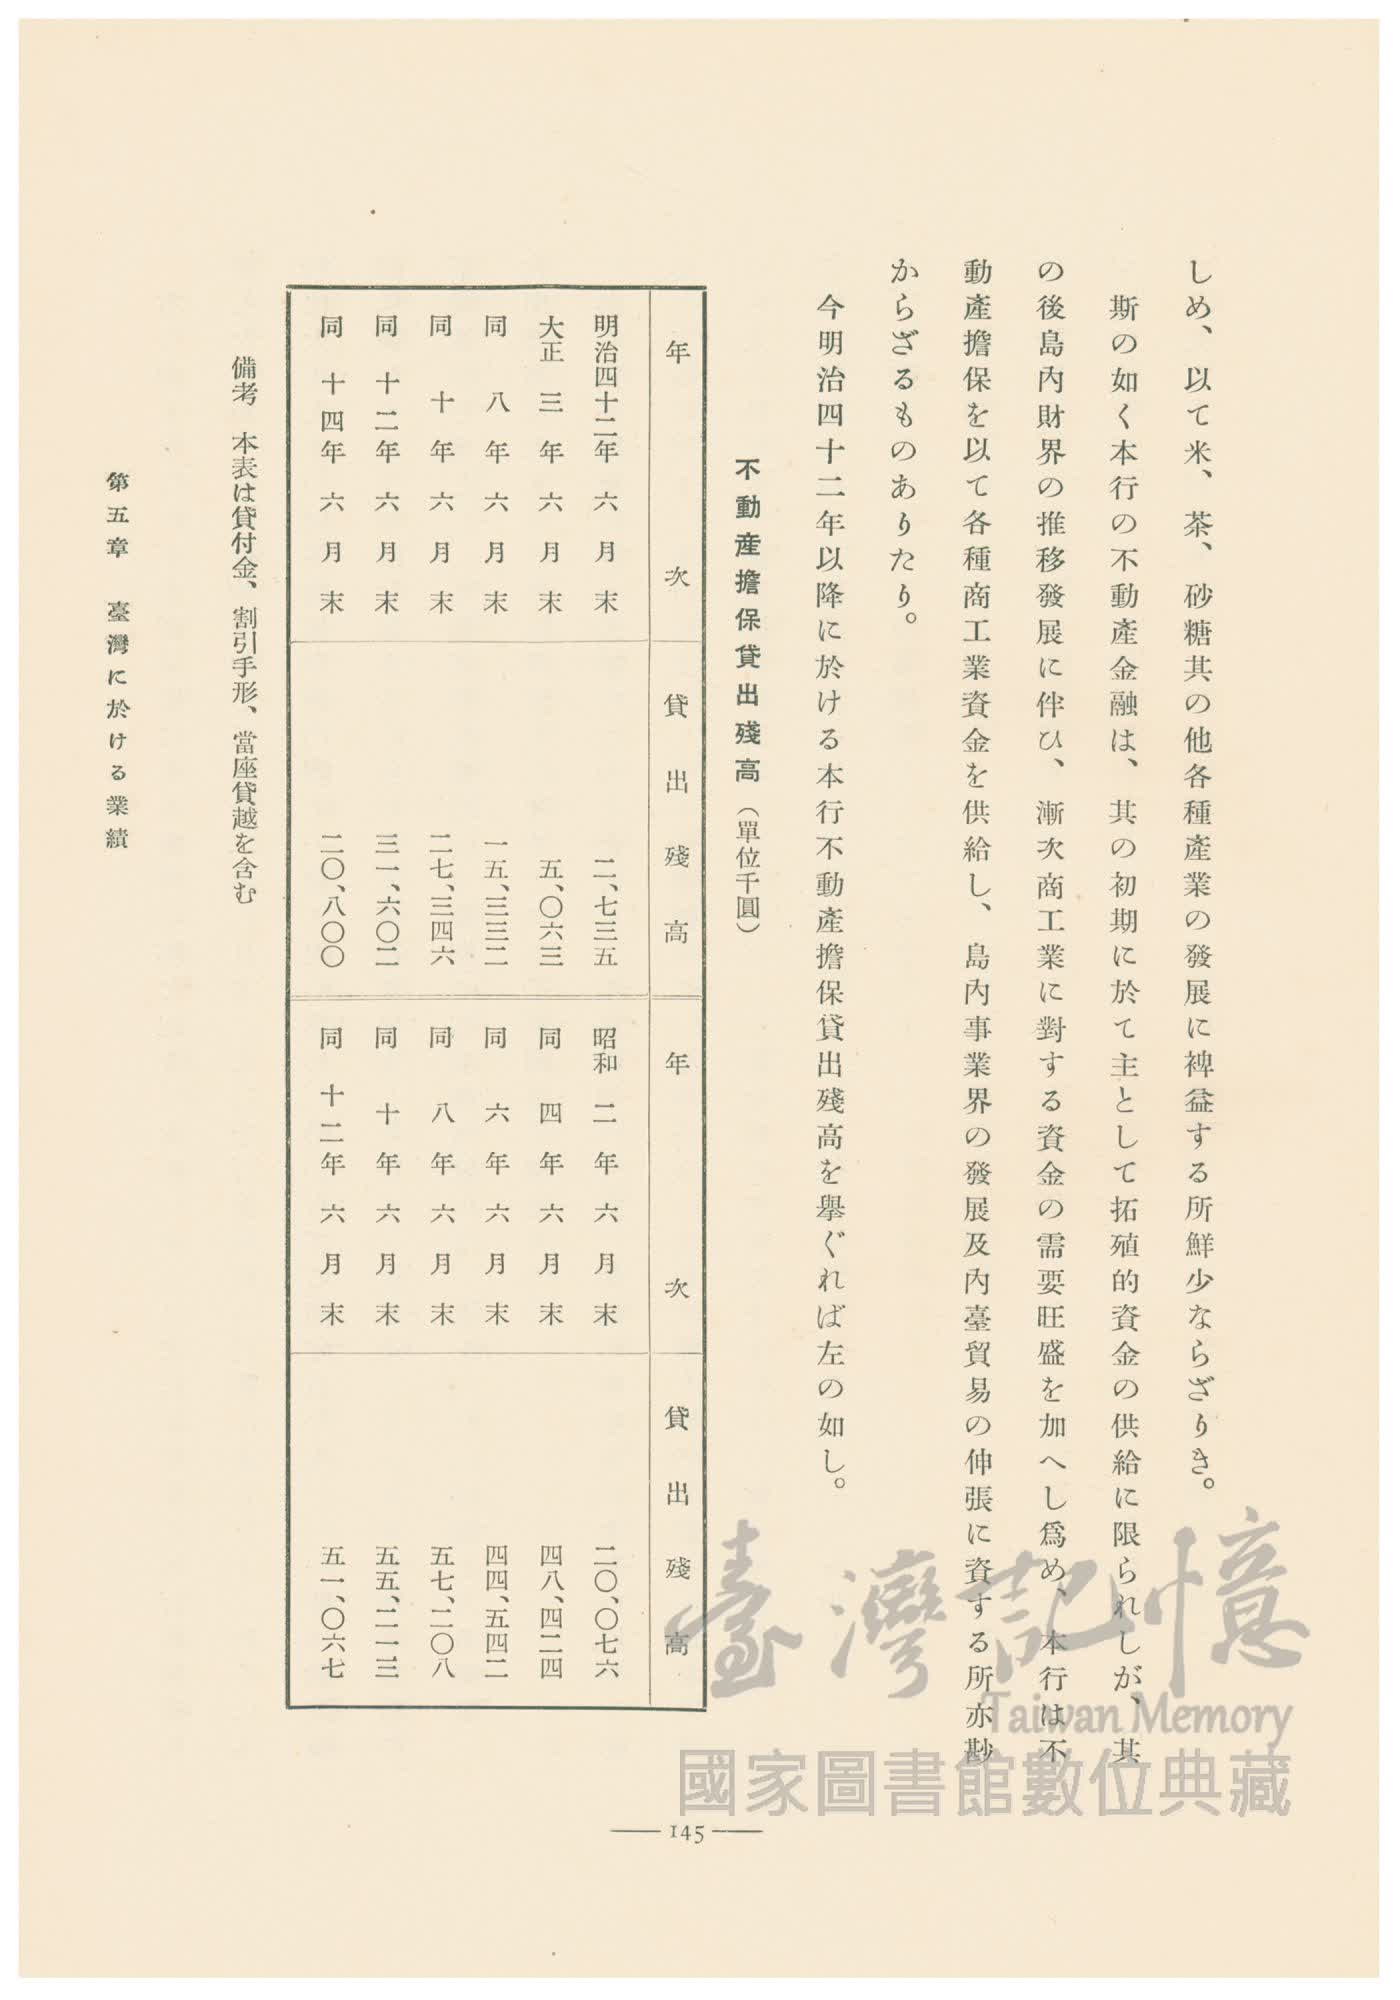 しめ、以て米、茶、砂糖其の他各種産業の發展に裨益する所鮮少ならざりき。
斯の如く本行の不動産金融は、其の初期に於て主として拓殖的資金の供給に限られしが、其
の後島內財界の推移發展に伴ひ、漸次商工業に對する資金の需要旺盛を加へし爲め、本行は不
動產擔保を以て各種商工業資金を供給し、島內事業界の發展及內臺貿易の伸張に資する所亦尠
からざるものありたり。
今明治四十二年以降に於ける本行不動產擔保貸出殘高を擧ぐれば左の如し。
不動産擔保貸出殘高（單位千圓）
年次 貸出殘高 年次 貸出殘高
明治四十二年六月末 二、七三五 昭和二年六月末 二〇、〇七六
大正三年六月末 五、〇六三 同四年六月末 四八、四二四
同八年六月末 一五、三三二 同六年六月末 四四、五四二
同十年六月末 二七、三四六 同八年六月末 五七、二〇八
同十二年六月末 三一、六〇二 同十年六月末 五五、二一三
同十四年六月末 二〇、八〇〇 同十二年六月末 五一、〇六七
備考 本表は貸付金、割引手形、當座貸越を含む
第五章 臺灣に於ける業績
145
臺灣記憶
Taiwan Memory
國家圖書館數位典藏